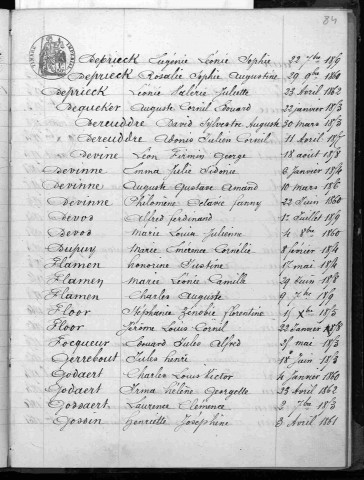 84
Deprieck Eugénie Léonie Sophie 22 7bre
Deprieck Rosalie Sophie Augustine 29 9bre 1860
Deprieck Léonie Valérie Juliette 23 Avril 1862
Dequeker Auguste Cornil Edouard 22 janvier 1873
Dereudre David Sylvestre Auguste 30 mars 1873
Dereuddre Adonis Julien Cornil 11 Avril
Devine Léon Firmin George 18 août
Devinne Emma Julie Sidonie 6 janvier 1874
Devinne Auguste Gustave Amand 10 mars
Devinne Philomène Octavie Jenny 22 Juin 1860
Devos Alfred ferdinand Juillet
Devos Marie Louise Julienne 4 8bre 1860
Dupuy Marie Emérence Cornélie 8 février 1874
Flamen honorine Justine 17 mai 1874
Flamen Marie Léonie Camille 29 Juin
Flamen Charles Auguste 9 7bre
Floor Stéphanie Zénobie florentine 15 Xbre
Floor Jérôme Louis Cornil 22 Janvier
Focqueur Edouard Jules Alfred 25 mai 1873
Gerrebout Jules henri 18 Juin 1873
Godaert Charles Louis Victor 4 Janvier 1860
Godaert Irma hélène Georgette 23 Avril 1862
Gossaert Laurence Clémence 2 7bre 1873
Gossin henriette Joséphine 3 Avril 1861